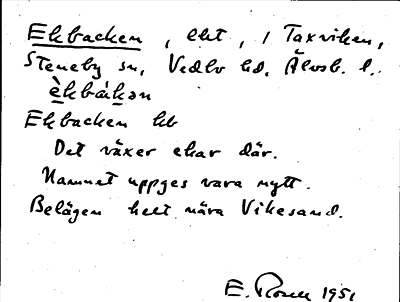 Ekbacken, lht, i Taxviken,
Steneby sn, Vedbo hd, Älvsb. l.
èkbákən
Ekbacken hb
Det växer ekar där.
Namnet uppges vara nytt.
Belägen helt nära Vikesand.
E. Rosell 1951